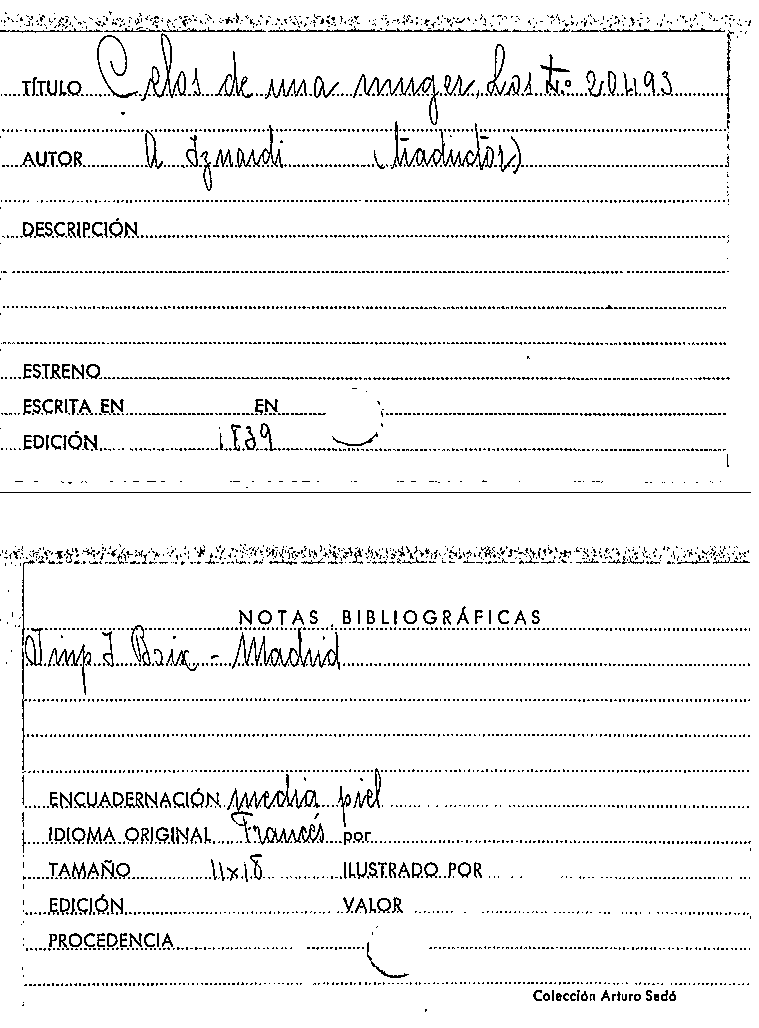 TÍTULO Celos de una muger, Los Nº 20493
AUTOR A Iznardi (traductor)
DESCRIPCIÓN
ESTRENO
ESCRITA EN EN
EDICIÓN 1839
NOTAS BIBLIOGRÁFICAS
Imp I Boix - Madrid
ENCUADERNACIÓN media piel
IDIOMA ORIGINAL Francés por
TAMAÑO 11x18 ILUSTRADO POR
EDICIÓN VALOR
PROCEDENCIA
Colección Arturo Sedó